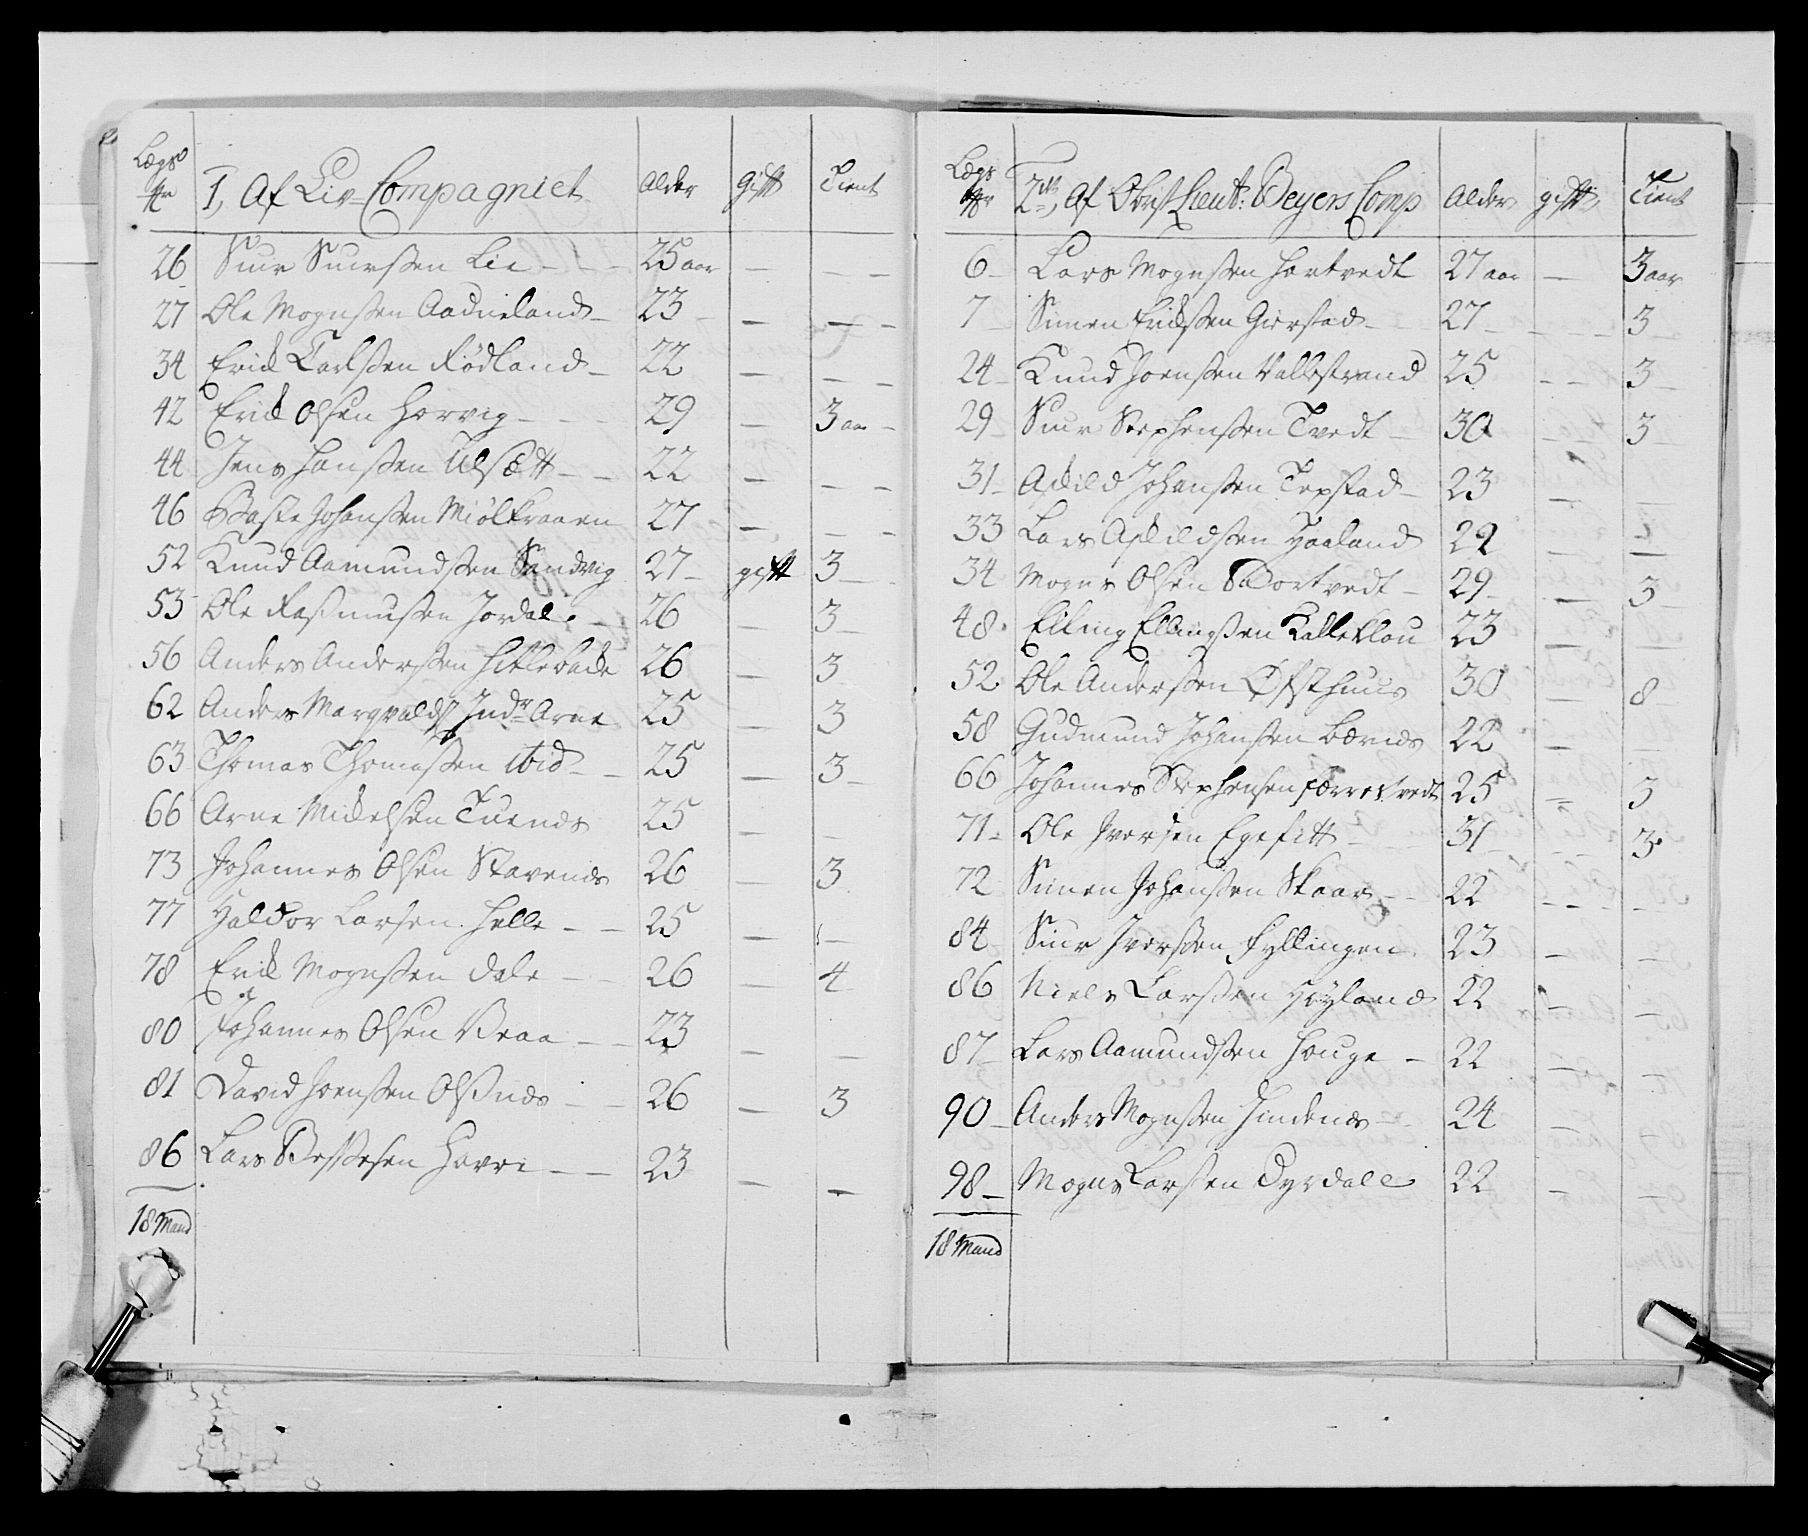 Lægs Nr 1, Af Liv Compagniet Alder Gift Tient
26 Siur Siursen Lie - - 25 aar - - -
27 Ole Mognssen Aadneland - 23 - - - -
34 Erick Carlssen Rødland - 22 - - -
42 Erick Olsen Horvig - - - 29 - 3 aar -
44 Jens Hanssen Ulsætt - - 22 - - -
46 Baste Johanssen Miølkraaen 27 - - -
52 Knud Aamundssen Sandvig 27 - gift 3 -
53 Ole Rasmussen Jordal - 26 - 3 -
56 Anders Anderssen Hitlebade 26 - 3
62 Anders Marqvalds Indr Arne 25 - 3
63 Thomas Thomassen ibid - - 25 - 3 -
66 Arne Mickelsen Tuenæs 25 - -
73 Johannes Olsen Stavenæs 26 - 3
77 Haldor Larsen Helle - - 25 - -
78 Erick Mognssen Dale - - 26 - 4
80 Johannes Olsen Braa - - 23 - -
81 David Joenssen Olsnæs - - 26 - 3
86 Lars Bessesen Havre - - 23 - -
18 Mand
Lægs Nr 2den, Af Obrist Lieut: Beyers Comp Alder gift Tient
6 - Lars Mognssen Hartvedt 27 aar - 3 aar
7 - Simen Ericksen Gierstad - 27 - - - 3 -
24 - Knud Joenssen Vallestrand 25 - - 3 -
29 - Siur Stephenssen Tvedt - 30 - - 3 -
31 - Askild Johanssen Tepstad - 23 - -
33 Lars Askildssen Haaland 22 - -
34 Mogns Olsen Bortvedt - 29 - - 3
48 Elling Ellingssen Kalleklou 23 - -
52 Ole Anderssen Øfsthuus 30 - 8 -
58 Gudmund Johanssen Bævnæs 22 - -
66 Johannes Stephensen Færrestvedt 25 - 3
71 - Ole Iversen Egefitt - 31 - - - 3
72 Simen Johanssen Skaar - - 22 - - -
84 Siur Iverssen Fyllingen 23 - -
86 Niels Larssen Høyland 22 - -
87 - Lars Aamundssen Houge - 22 - -
90 - Anders Mognssen Hindenæs - 24 - -
98 - Mogns Larssen Dyrdall 22 - -
18 Mand